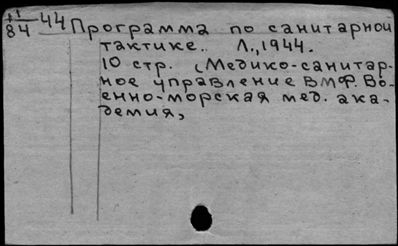 11/84 44 Программа по санитарной
тактике. Л., 1944.
10 стр. (Медико-санитар-
ное управление ВМФ. Во-
енно-морская мед. ака-
демия,